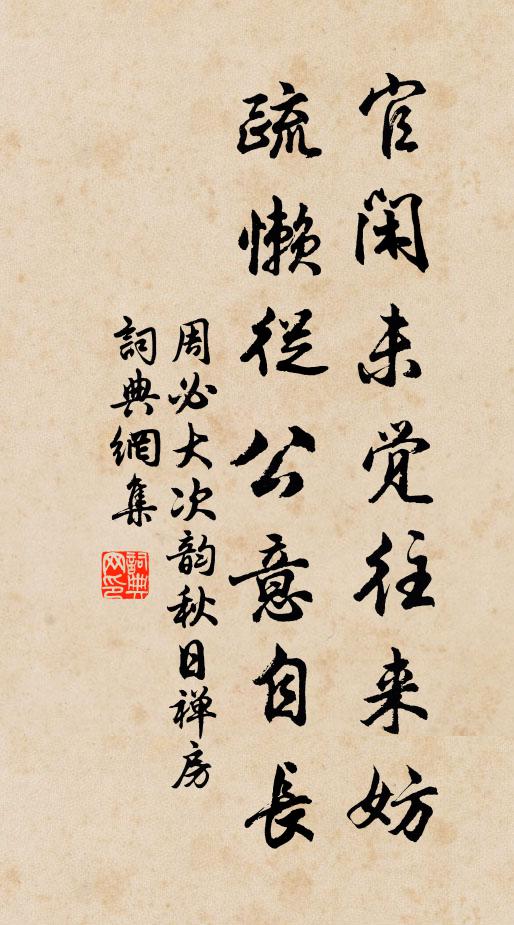 官闲未觉往来妨
疏懒從公意自長
周必大次韵秋日禅房
詞典網集
詞典网印